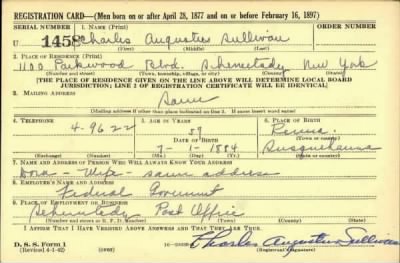 REGISTRATION CARD—(Men born on or after April 28, 1877 and on or before February 16, 1897)
SERIAL NUMBER 1. NAME (Print) ORDER NUMBER
U 1458 Charles Augustus Sullivan
(First) (Middle) (Last)
2. PLACE OF RESIDENCE (Print)
1100 Parkwood Blvd. Schenectady New York
(Number and street) (Town, township, village, or city) (County) (State)
[THE PLACE OF RESIDENCE GIVEN ON THE LINE ABOVE WILL DETERMINE LOCAL BOARD
JURISDICTION; LINE 2 OF REGISTRATION CERTIFICATE WILL BE IDENTICAL]
3. MAILING ADDRESS
Same
[Mailing address if other than place indicated on line 2. If same insert word same]
4. TELEPHONE 5. AGE IN YEARS 6. PLACE OF BIRTH
4-9622 57 Penna.
DATE OF BIRTH (Town or county)
7-1-1884 Susquehanna
(Exchange) (Number) (Mo.) (Day) (Yr.) (State or country)
7. NAME AND ADDRESS OF PERSON WHO WILL ALWAYS KNOW YOUR ADDRESS
Dora - Wife - same address
8. EMPLOYER'S NAME AND ADDRESS
Federal Goverment
9. PLACE OF EMPLOYMENT OR BUSINESS
Schenectady Post Office
(Number and street or R. F. D. number) (Town) (County) (State)
I AFFIRM THAT I HAVE VERIFIED ABOVE ANSWERS AND THAT THEY ARE TRUE.
D. S. S. Form 1
(Revised 4-1-42) (over) Charles Augustus Sullivan
(Registrant's signature)